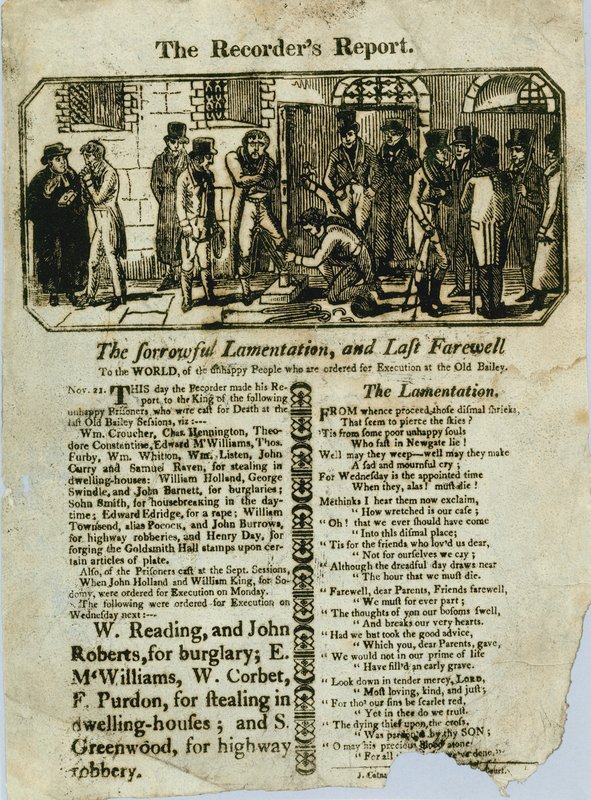 The Recorder's Report.
The ſorrowful Lamentation, and Laſt Farewell
To the WORLD, of the unhappy People who are ordered for Execution at the Old Bailey.
Nov. 22. THIS day the Recorder made his Re-
port to the King of the following
unhappy Priſoners, who were caſt for Death at the
laſt Old Bailey Seſsions, viz :---
Wm. Croucher, Chas. Hennington, Theo-
dore Constantine, Edward McWilliams, Thos.
Furby, Wm. Whitton, Wm. Listen, John
Curry and Samuel Raven, for stealing in
dwelling-houses: William Holland, George
Swindle, and John Barnett, for burglaries;
Sohn Smith, for housebreaking in the day-
time; Edward Edridge, for a rape; William
Townsend, alias Pocock, and John Burrows,
for highway robberies, and Henry Day, for
forging the Goldsmith Hall stamps upon cer-
tain articles of plate.
Also, of the Priſoners caſt at the Sept. Seſſions,
When John Holland and William King, for So-
domy, were ordered for Execution on Monday.
The following were ordered for Execution on
Wedneſday next :---
W. Reading, and John
Roberts, for burglary; E.
McWilliams, W. Corbet,
F. Purdon, for ſtealing in
dwelling-houſes ; and S.
Greenwood, for highway
robbery.
The Lamentation.
FROM whence proceed thoſe diſmal ſhrieks,
That ſeem to pierce the ſkies ?
'Tis from ſome poor unhappy ſouls
Who faſt in Newgate lie !
Well may they weep—well may they make
A ſad and mournful cry ;
For Wedneſday is the appointed time
When they, alas! muſt die !
Methinks I hear them now exclaim,
" How wretched is our caſe ;
" Oh ! that we ever ſhould have come
" Into this diſmal place;
" 'Tis for the friends who lov'd us dear,
" Not for ourſelves we cry ;
" Although the dreadful day draws near
" The hour that we muſt die.
" Farewell, dear Parents, Friends farewell,
" We muſt for ever part ;
" The thoughts of you our boſoms ſwell,
" And breaks our very hearts.
" Had we but took the good advice,
" Which you, dear Parents, gave,
" We would not in our prime of life
" Have fill'd an early grave.
" Look down in tender mercy, LORD,
" Moſt loving, kind, and juſt;
" For tho' our ſins be ſcarlet red,
" Yet in thee do we truſt.
" The dying thief upon the croſs,
" Was pardon'd by thy SON ;
" O may his precious blood atone
" For all done."
J. Court.